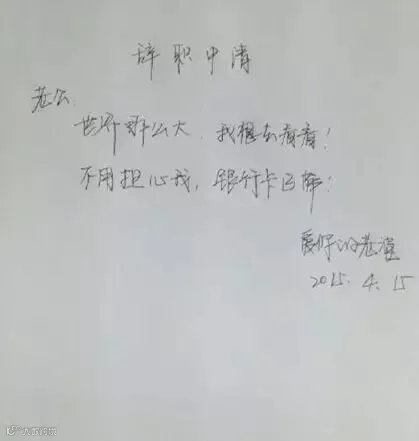 辞职申请
老公
世界那么大,我想去看看!
不用担心我,银行卡已带!
爱你的老婆
2015.4.15